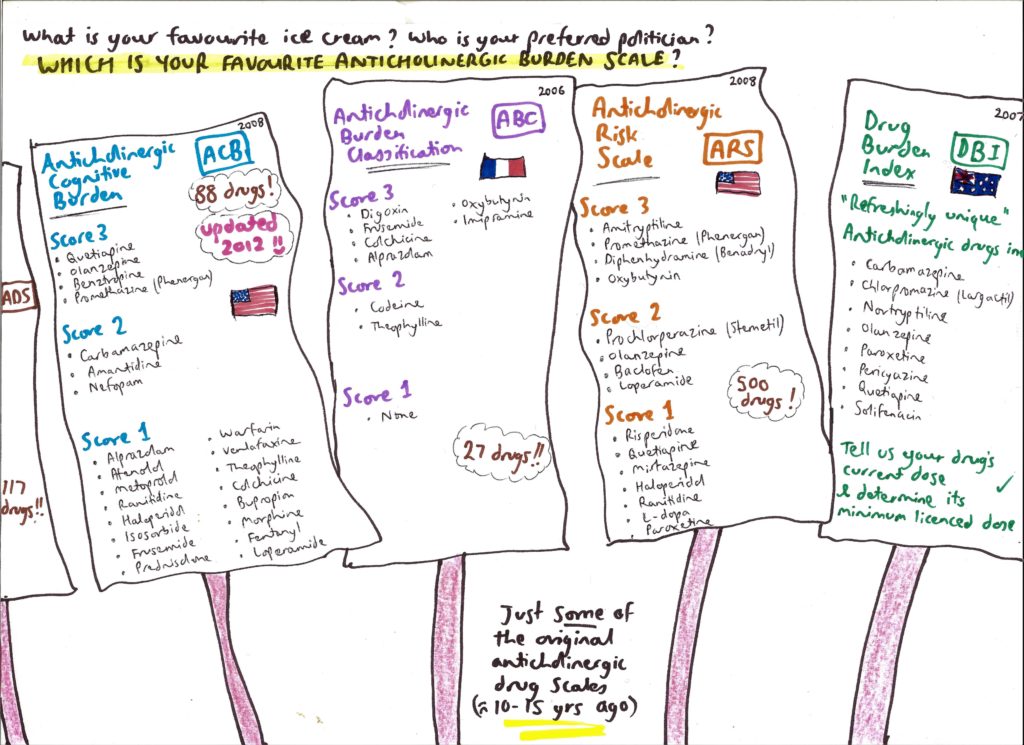 What is your favourite ice cream? Who is your preferred politician?
WHICH IS YOUR FAVOURITE ANTICHOLINERGIC BURDEN SCALE?
ADS
117
drugs!!
2008
Anticholinergic
Cognitive
Burden
ACB
88 drugs!
updated
2012 !!
Score 3
• Quetiapine
• Olanzepine
• Benztropine
• Promethazine (Phenergan)
Score 2
• Carbamazepine
• Amantidine
• Nefopam
Score 1
• Alprazolam
• Atenolol
• Metoprolol
• Ranitidine
• Haloperidol
• Isosorbide
• Frusemide
• Prednisolone
• Warfarin
• Venlafaxine
• Theophylline
• Colchicine
• Bupropion
• Morphine
• Fentanyl
• Loperamide
2006
Anticholinergic
Burden
Classification
ABC
Score 3
• Digoxin
• Frusemide
• Colchicine
• Alprazolam
• Oxybutynin
• Imipramine
Score 2
• Codeine
• Theophylline
Score 1
• None
27 drugs!!
2008
Anticholinergic
Risk
Scale
ARS
Score 3
• Amitryptiline
• Promethazine (Phenergan)
• Diphenhydramine (Benadryl)
• Oxybutynin
Score 2
• Prochlorperazine (Stemetil)
• Olanzepine
• Baclofen
• Loperamide
500
drugs!
Score 1
• Risperidone
• Quetiapine
• Mirtazepine
• Haloperidol
• Ranitidine
• L-dopa
• Paroxetine
2007
Drug
Burden
Index
DBI
"Refreshingly unique"
Anticholinergic drugs in
• Carbamazepine
• Chlorpromazine (Largactil)
• Nortryptiline
• Olanzepine
• Paroxetine
• Pericyazine
• Quetiapine
• Solifenacin
Tell us your drug's
current dose
& determine its
minimum licenced dose
✓
Just some of
the original
anticholinergic
drug scales
(≈10-15 yrs ago)